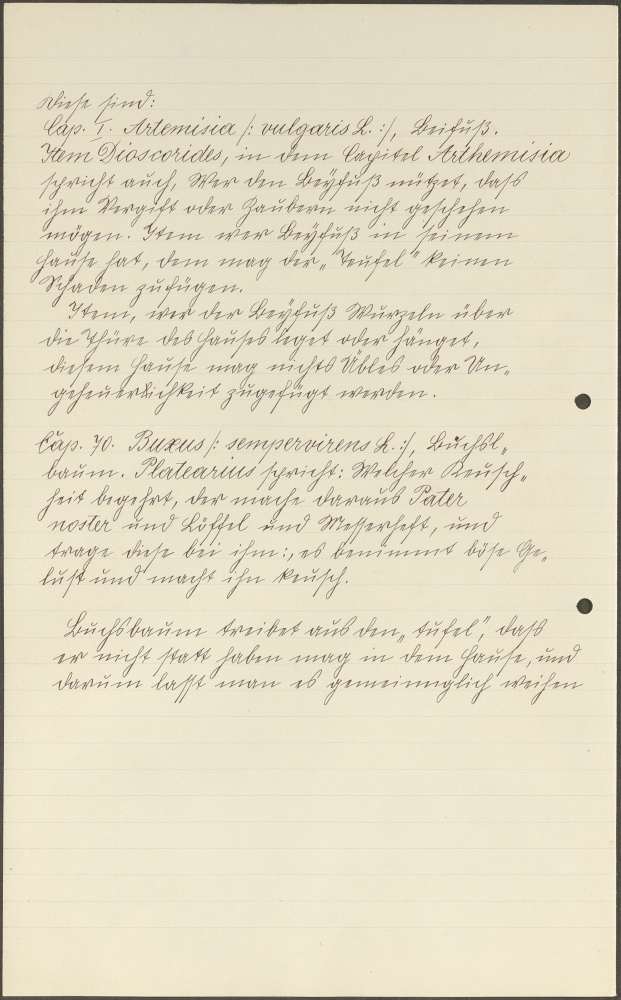 Diese sind:
Cap. I. Artemisia /: vulgaris L. :/, Beifuß.
Item Dioscorides, in dem Capitel Arthemisia
spricht auch, Wer den Beyfuß nützet, dass
ihm Vergift oder Zaubern nicht geschehen
mögen. Item wer Beyfuß in seinem
Hause hat, dem mag der „Teufel" keinen
Schaden zufügen.
Item, wer der Beyfuß Wurzeln über
die Thüre des Hauses leget oder hänget,
diesem Hause mag nichts Übles oder Un„
geheuerlichkeit zugefügt werden.
Cap. 70. Buxus /: sempervirens L. :/, Buchsl„
baum. Platearius spricht: Welcher Keusch„
heit begehrt, der mache daraus Pater
noster und Löffel und Messerheft, und
trage diese bei ihm:, es benimmt böse Ge„
lust und macht ihn keusch.
Buchsbaum treibet aus den „tüfel", dass
er nicht statt haben mag in dem Hause, und
darum lasst man es gemeiniglich weihen